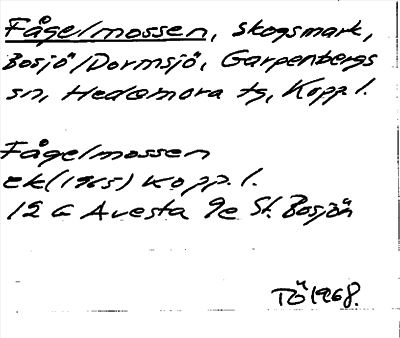 Fågelmossen, skogsmark,
Bosjö/Dormsjö, Garpenbergs
sn, Hedemora tg, Kopp. l.
Fågelmossen
ek (1965) Kopp. l.
12 G Avesta 9e St. Bosjön
TÖ 1968.